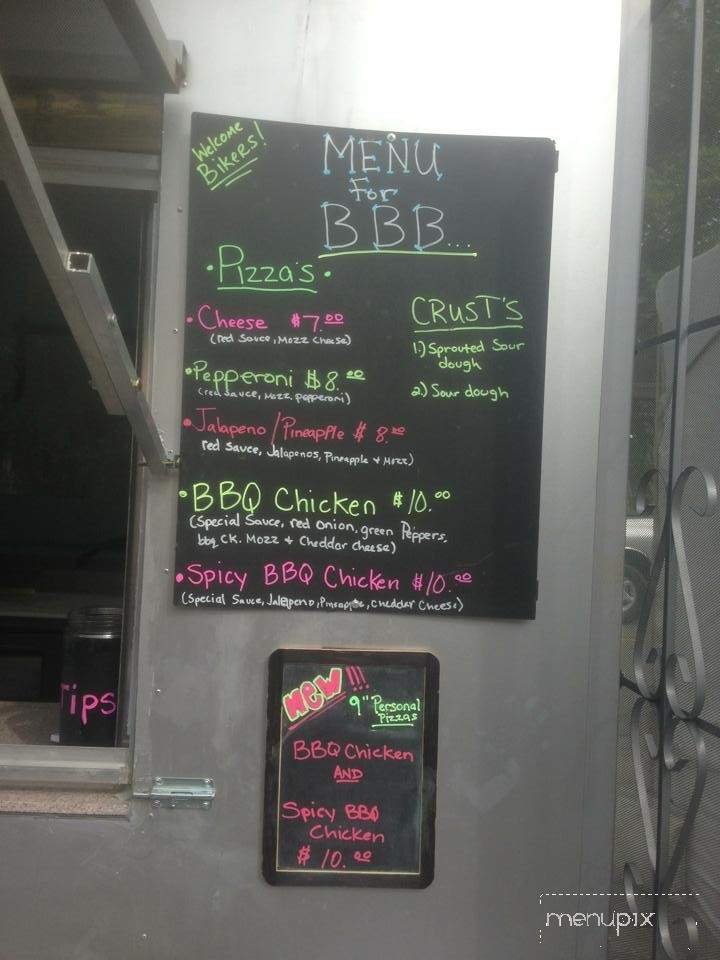 Welcome
Bikers!
MENU
For
BBB...
• Pizza's •
• Cheese $7.00
(red Sauce, Mozz Cheese)
• Pepperoni $8.00
(red Sauce, Mozz, pepperoni)
• Jalapeno / Pineapple $8.00
red Sauce, Jalapenos, Pineapple + Mozz)
• BBQ Chicken $10.00
(Special Sauce, red onion, green Peppers,
bbq CK. Mozz + Cheddar Cheese)
• Spicy BBQ Chicken $10.00
(Special Sauce, Jalapeno, Pineapple, Cheddar Cheese)
CRUST'S
1.) Sprouted Sour
dough
2.) Sour dough
Tips
NEW!!!
9" Personal
Pizzas
BBQ Chicken
AND
Spicy BBQ
Chicken
$10.00
menupix